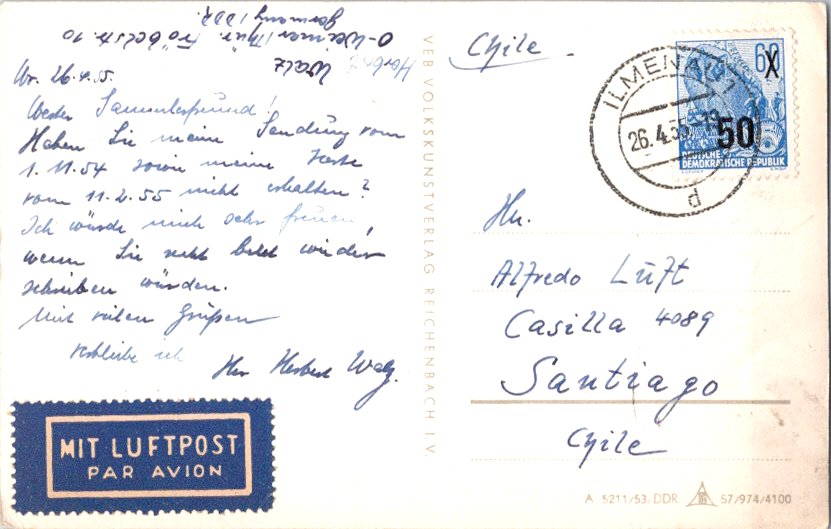 Herbert Walz
O-Weimar/Thür. Fröbelstr. 10
Germany/DDR
Wr. 26.4.55.
Werter Sammlerfreund!
Haben Sie meine Sendung vom
1.11.54 sowie meine Karte
vom 11.2.55 nicht erhalten?
Ich würde mich sehr freuen,
wenn Sie recht bald wieder
schreiben würden.
Mit vielen Grüßen
verbleibe ich
Ihr Herbert Walz.
MIT LUFTPOST
PAR AVION
VEB VOLKSKUNSTVERLAG REICHENBACH I.V.
Chile
ILMENAU 1
26.4.55
d
60
50
DEUTSCHE
DEMOKRATISCHE REPUBLIK
Hn.
Alfredo Luft
Casilla 4089
Santiago
Chile
A 5211/53 DDR 57/974/4100